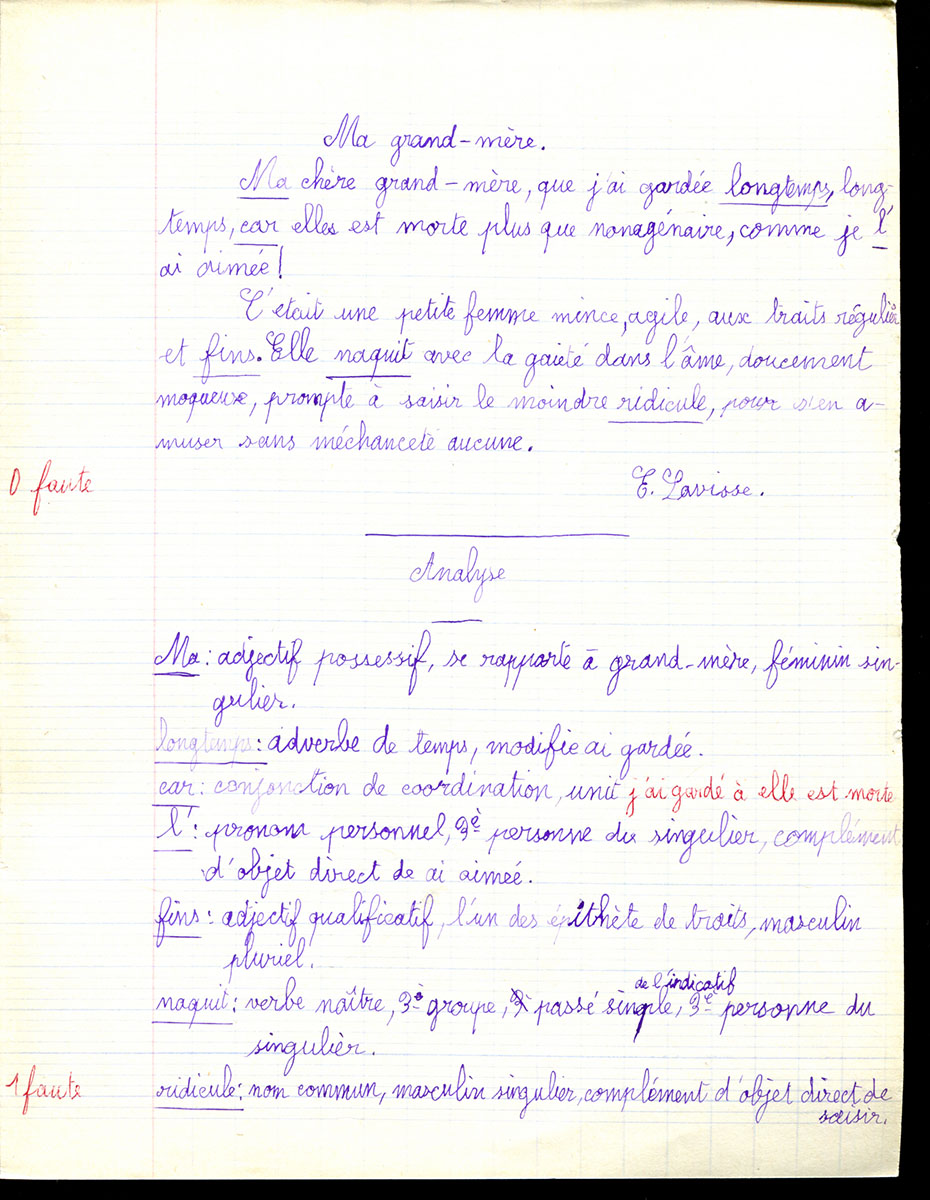 Ma grand-mère.
Ma chère grand-mère, que j'ai gardée longtemps, long-
temps, car elles est morte plus que nonagénaire, comme je l'
ai aimée !
C'était une petite femme mince, agile, aux traits réguliers
et fins. Elle naquit avec la gaieté dans l'âme, doucement
moqueuse, prompte à saisir le moindre ridicule, pour s'en a-
muser sans méchanceté aucune.
0 faute
E. Lavisse.
Analyse
Ma : adjectif possessif, se rapporte à grand-mère, féminin sin-
gulier.
longtemps : adverbe de temps, modifie ai gardée.
car : conjonction de coordination, unit j'ai gardé à elle est morte
l' : pronom personnel, 3è personne du singulier, complément
d'objet direct de ai aimée.
fins : adjectif qualificatif, l'un des épithète de traits, masculin
pluriel.
de l'indicatif
naquit : verbe naître, 3è groupe, passé simple, 3è personne du
singulier.
1 faute
ridicule : nom commun, masculin singulier, complément d'objet direct de
saisir.